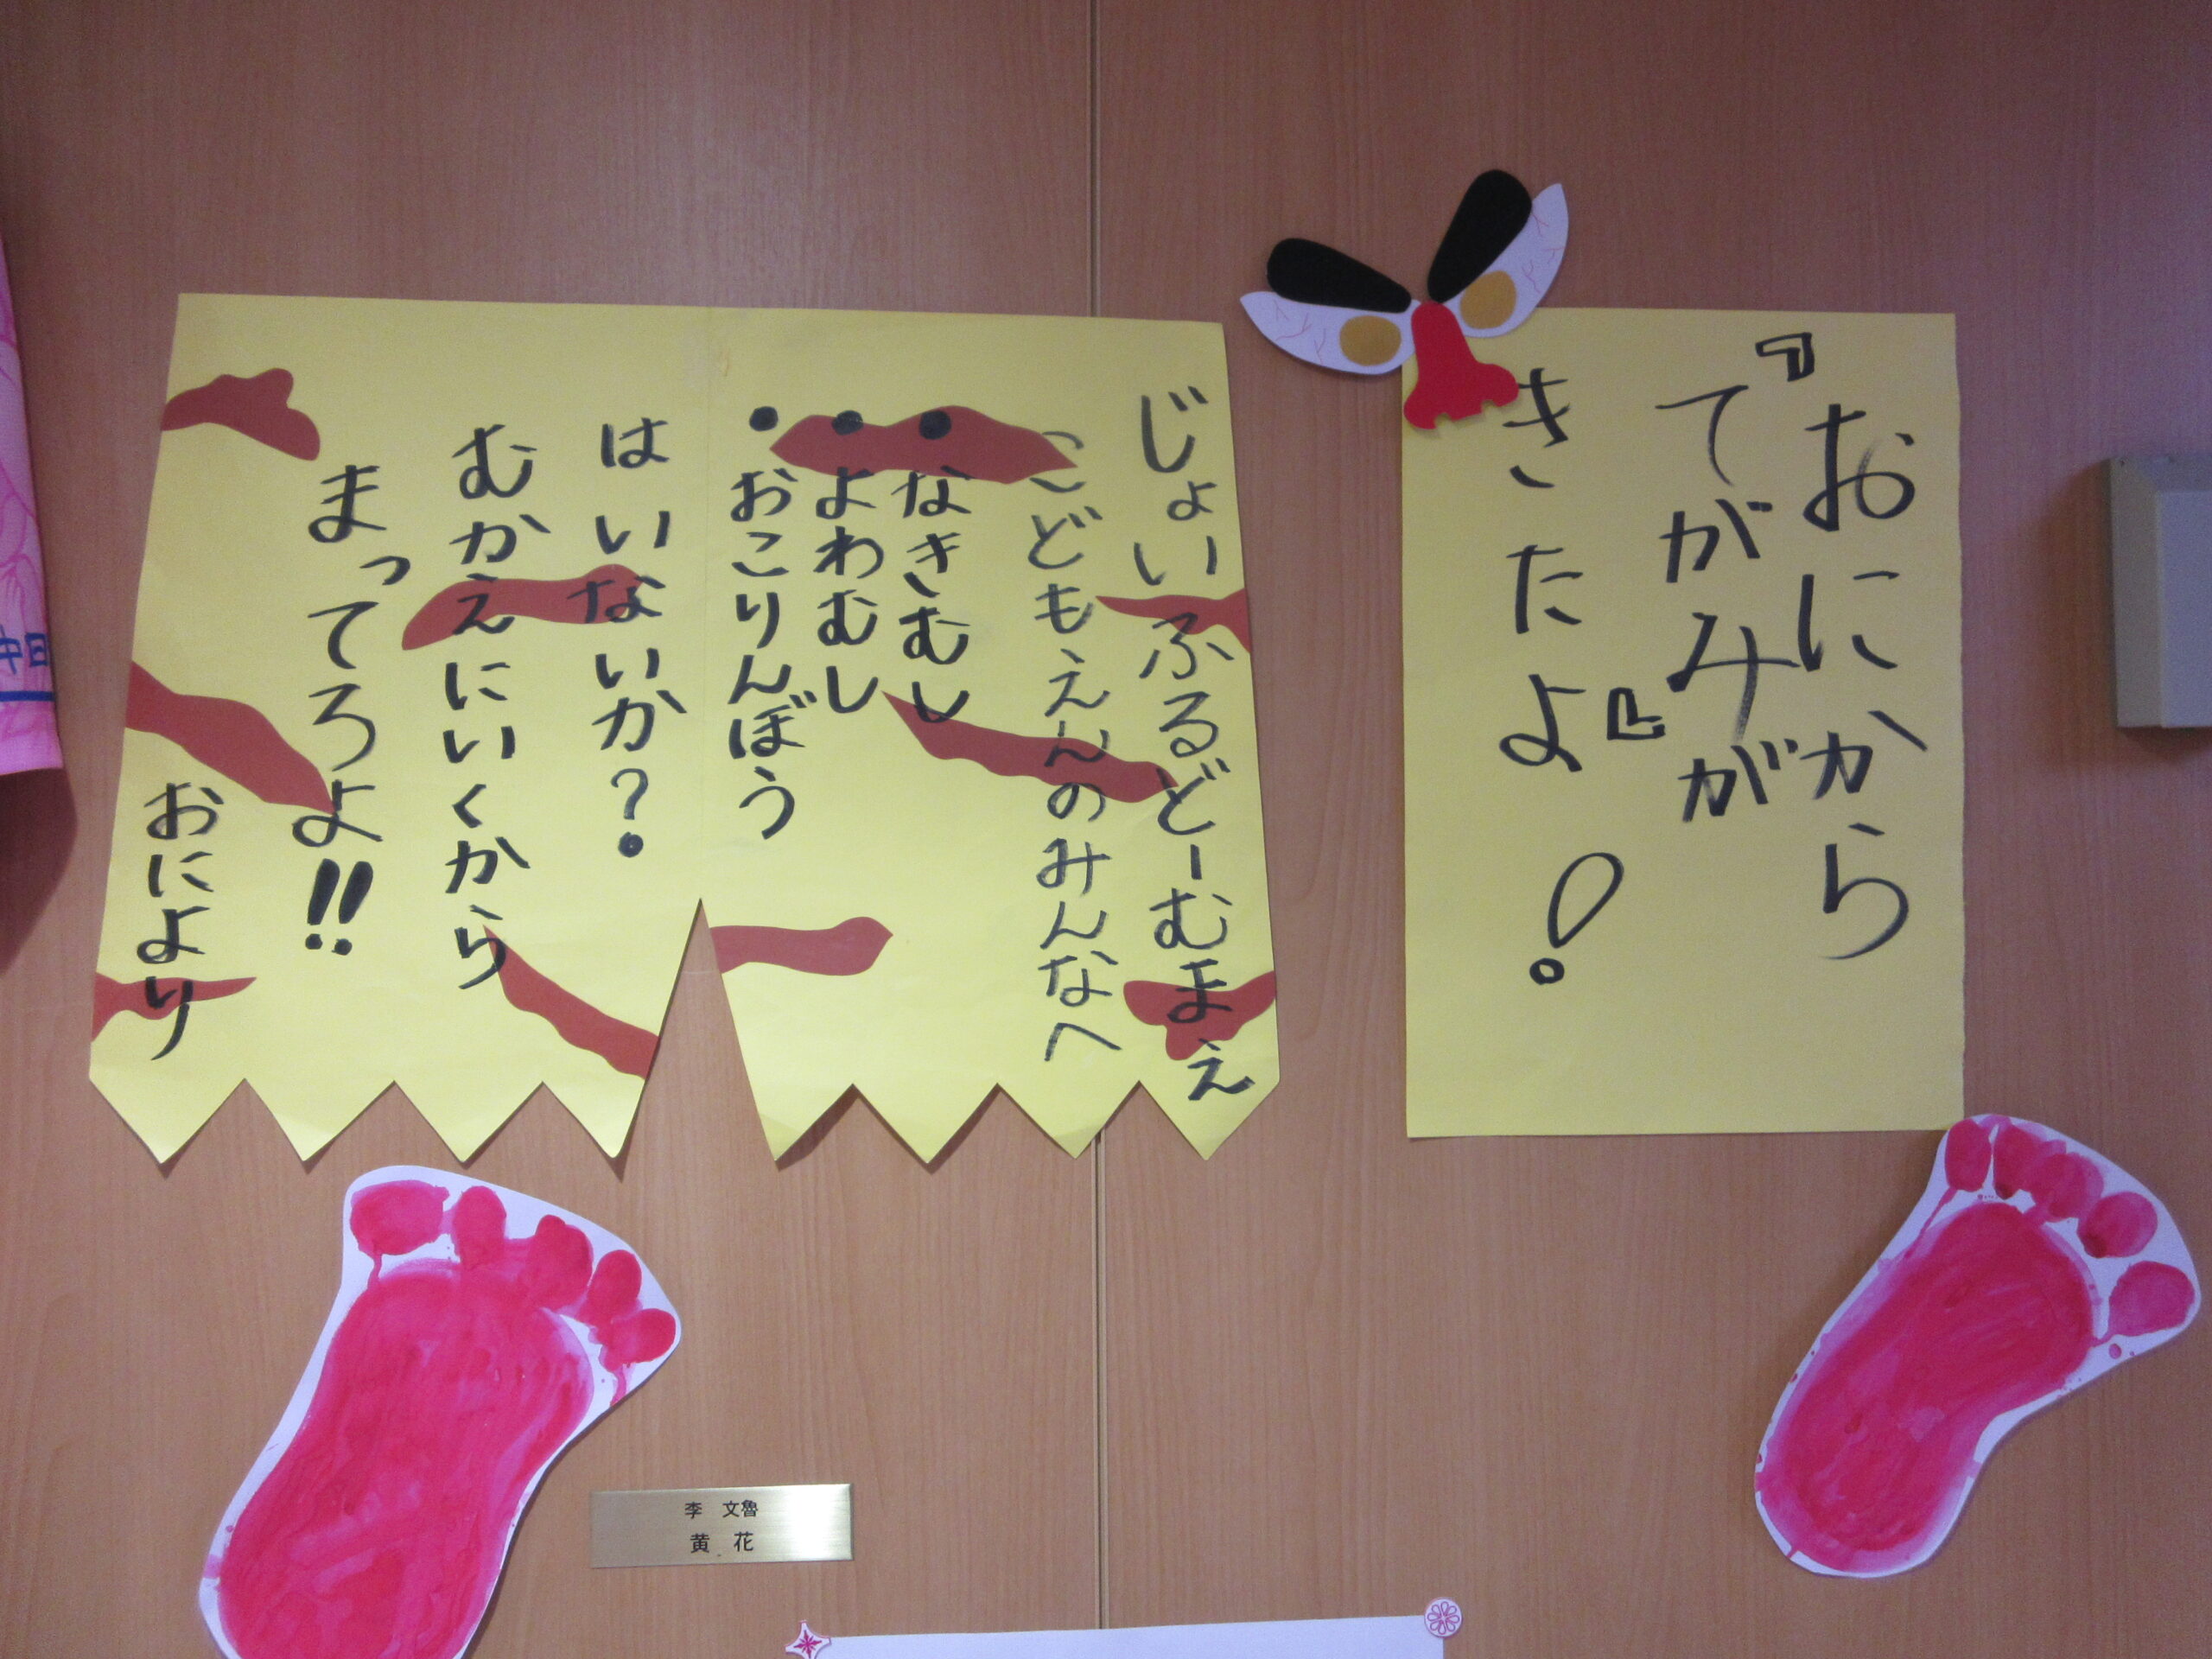 『おにから
てがみが
きたよ』!
じょいふるどーむまえ
こどもえんのみんなへ
・なきむし
・よわむし
・おこりんぼう
はいないか?.
むかえにいくから
まってろよ!!
おにより
李 文魯
黄 花